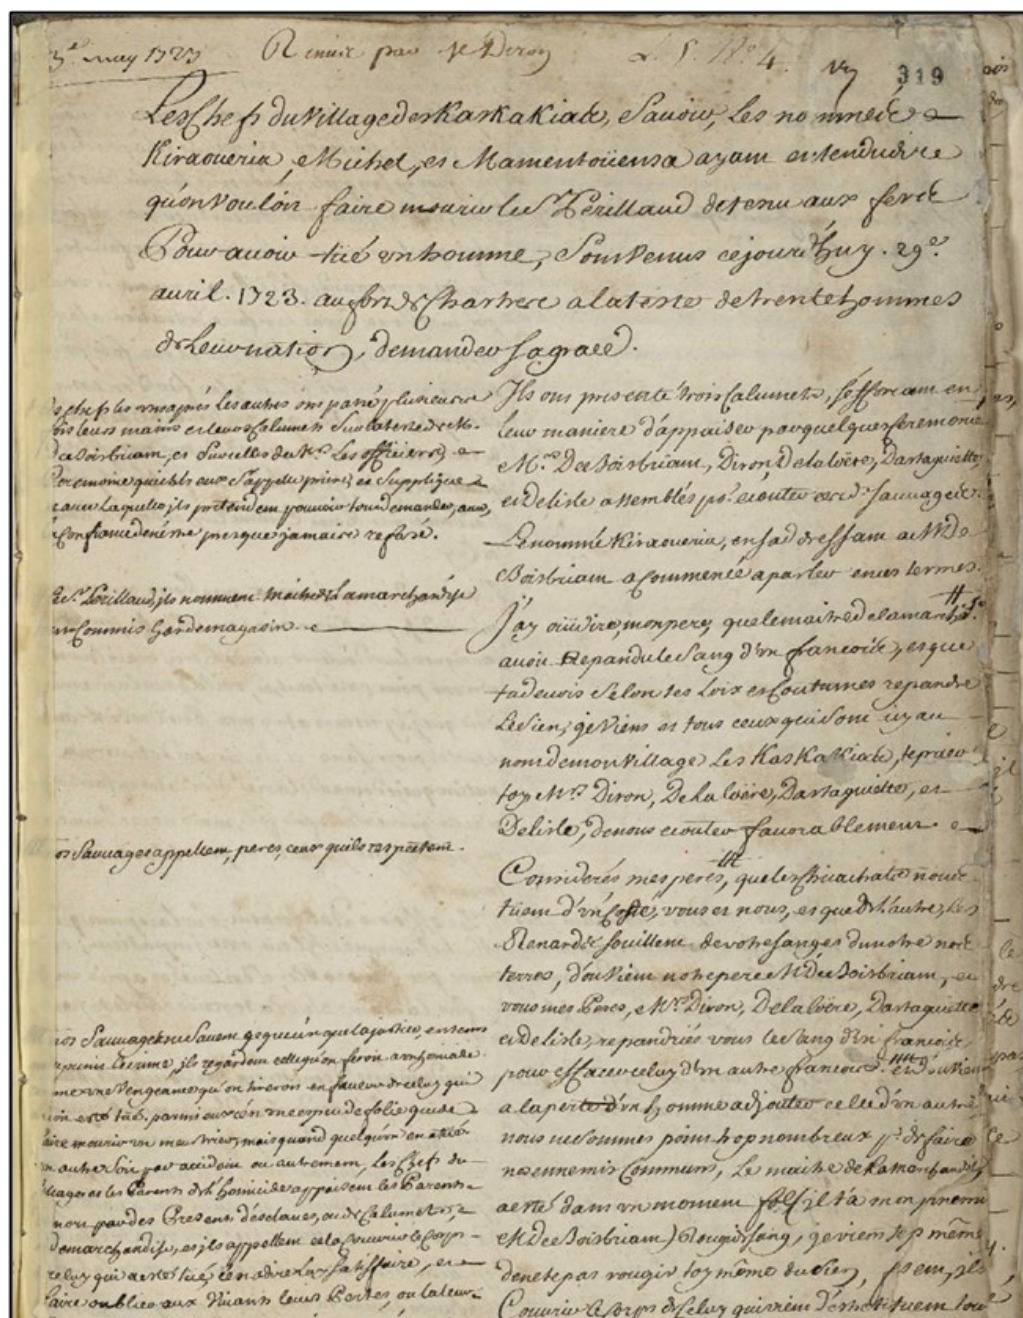 may 1723 Remise par Mr Diron
319
Les Chefs du Village des Kaskakiats, Sauoir, Les nommés
Kiraoueria, Michel, et Mamentoüensa ayant entendu dire
qu'on vouloit faire mourir le Sr Perillaud detenu aux fers
Pour auoir tué un homme, Sont Venus cejourd'huy. 29e.
auril. 1723. au fort de Chartres a la teste de trente hommes
de Leur nation, demander sa grace.
Chefs les uns aprés les autres ont passé plusieurs
fois leurs mains et leurs Calumets Sur la teste de M.
de Boisbriam, et Sur celles de Mrs. Les officiers,
Ceremonie qui chés eux
laquelle ils pretendent pouvoir tout demander, auec
Confiance de n'éstre presque jamais refusé.
Le Sr. Perillaud, ils nomment Maitre de La marchandise
un Commis Garde magasin.
Sauuages appellent, peres, ceux qu'ils respectent.
Sauuages ne Sauent ce que c'est que la justice, en tems
le crime, ils regardent celle qu'on feroit
une Vengeance qu'on tireroit en faueur de celuy qui
esté tué. parmi eux c'est une espece de folie que de
faire mourir un meurtrier, mais quand quelqu'un en a tué
un autre soit par accident ou autrement, Les Chefs du
Village et les Parents de l'homicide appaisent les Parents
mort par des Presents d'esclaues, ou de Calumets,
de marchandise, et ils appellent cela Couurir le Corps
celuy qui a esté tué, c'est a dire La Satisfaire, et
faire oublier aux Viuants leurs Pertes, ou la leur
Ils ont presenté trois Calumets, s'efforcant en
leur maniere d'appaiser par quelque ceremonie
Mrs. De Boisbriam, Diron, De la loëre, Dartaguiette,
et Delisle assemblés pr. écouter ces Sauuages.
Le nommé Kiraoueria, en s'addressant a M. De
Boisbriam a commencé a parler en ces termes.
J'ay oüi dire, mon pere, que le maitre de la march.se
auoit Repandu le Sang d'un francois, et que
tu deuois Selon tes Loix et Coutumes repandre
Le Sien; je Viens et tous ceux qui Sont icy au
nom de mon Village Les Kaskakiats, te prier
toy Mrs. Diron, De la loëre, Dartaguiette, et
Delisle, de nous ecouter fauorablement.
Considerés mes peres, que les Chicachats nous
tüent d'un Costé, vous et nous, et que de l'autre, Les
Renards souillent de votre sang et du notre nos
terres, d'ou Vient notre pere M. De Boisbriam, et
vous mes Peres, Mrs. Diron, De la loëre, Dartaguiette
et Delisle, repandriés vous le Sang d'un francois,
pour effacer celuy d'un autre francois. et
a la perte d'un homme adjouter celle d'un autre
nous ne Sommes point trop nombreux pr. deffaire
nos ennemis Communs, Le maitre de La marchandise
a esté dans un moment fol (il t'a mon pere
M. De Boisbriam) Rougi de sang, je viens
de ne te pas rougir toy même du Sien,
Couurir le Corps de Celuy qui vient d'estre